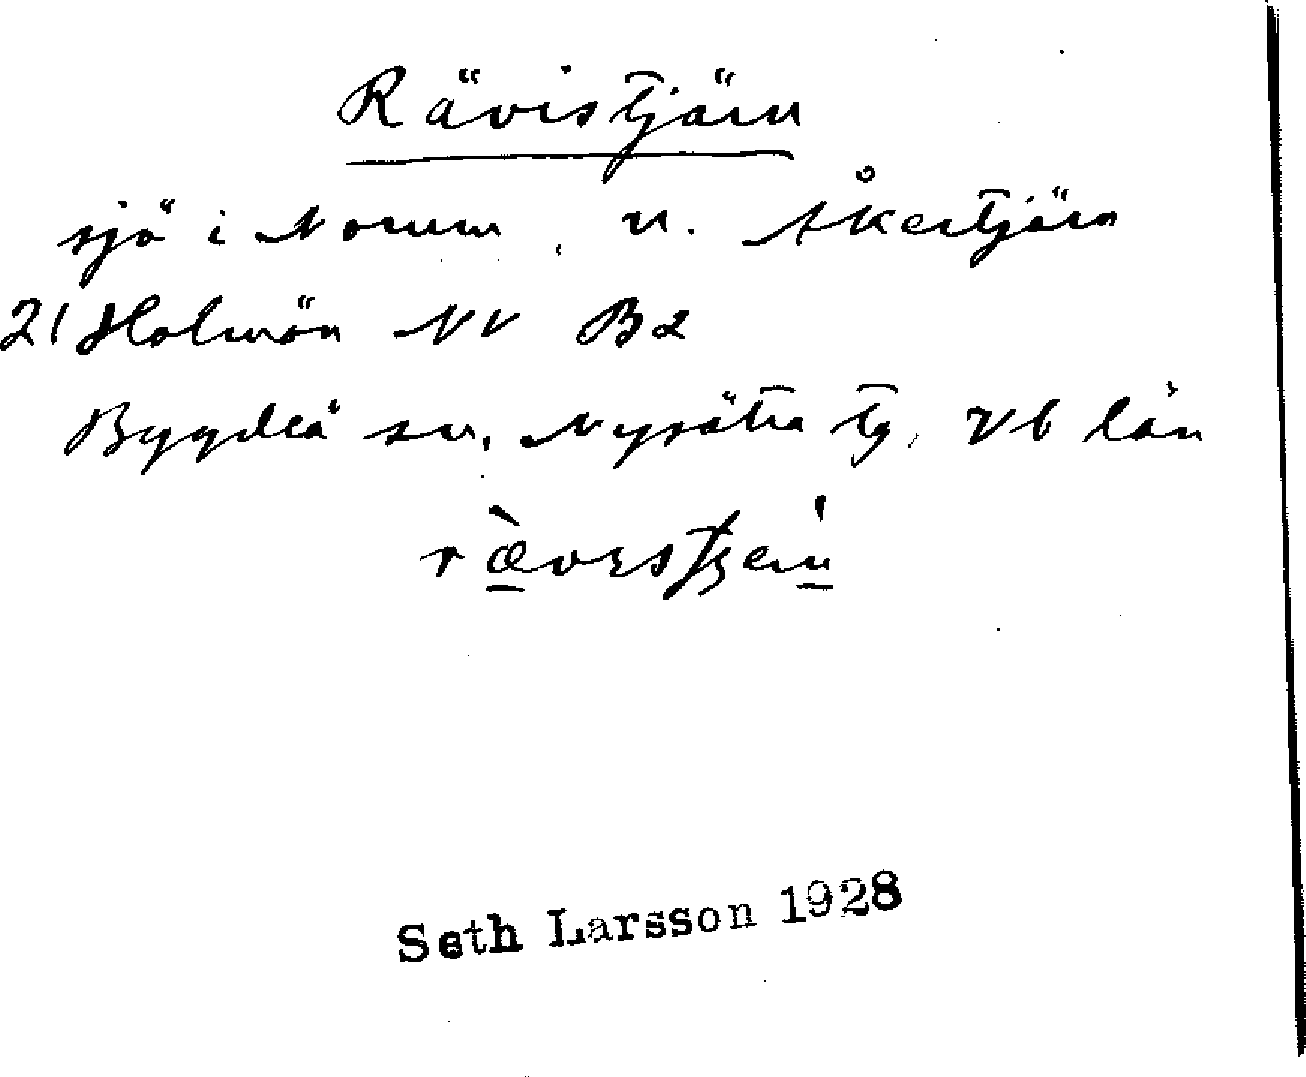 Rävistjärn
sjö i Norum, n. Åkertjärn
21 Holmön NV B2
Bygdeå sn. Nysätra tg. Vb län
Seth Larsson 1928